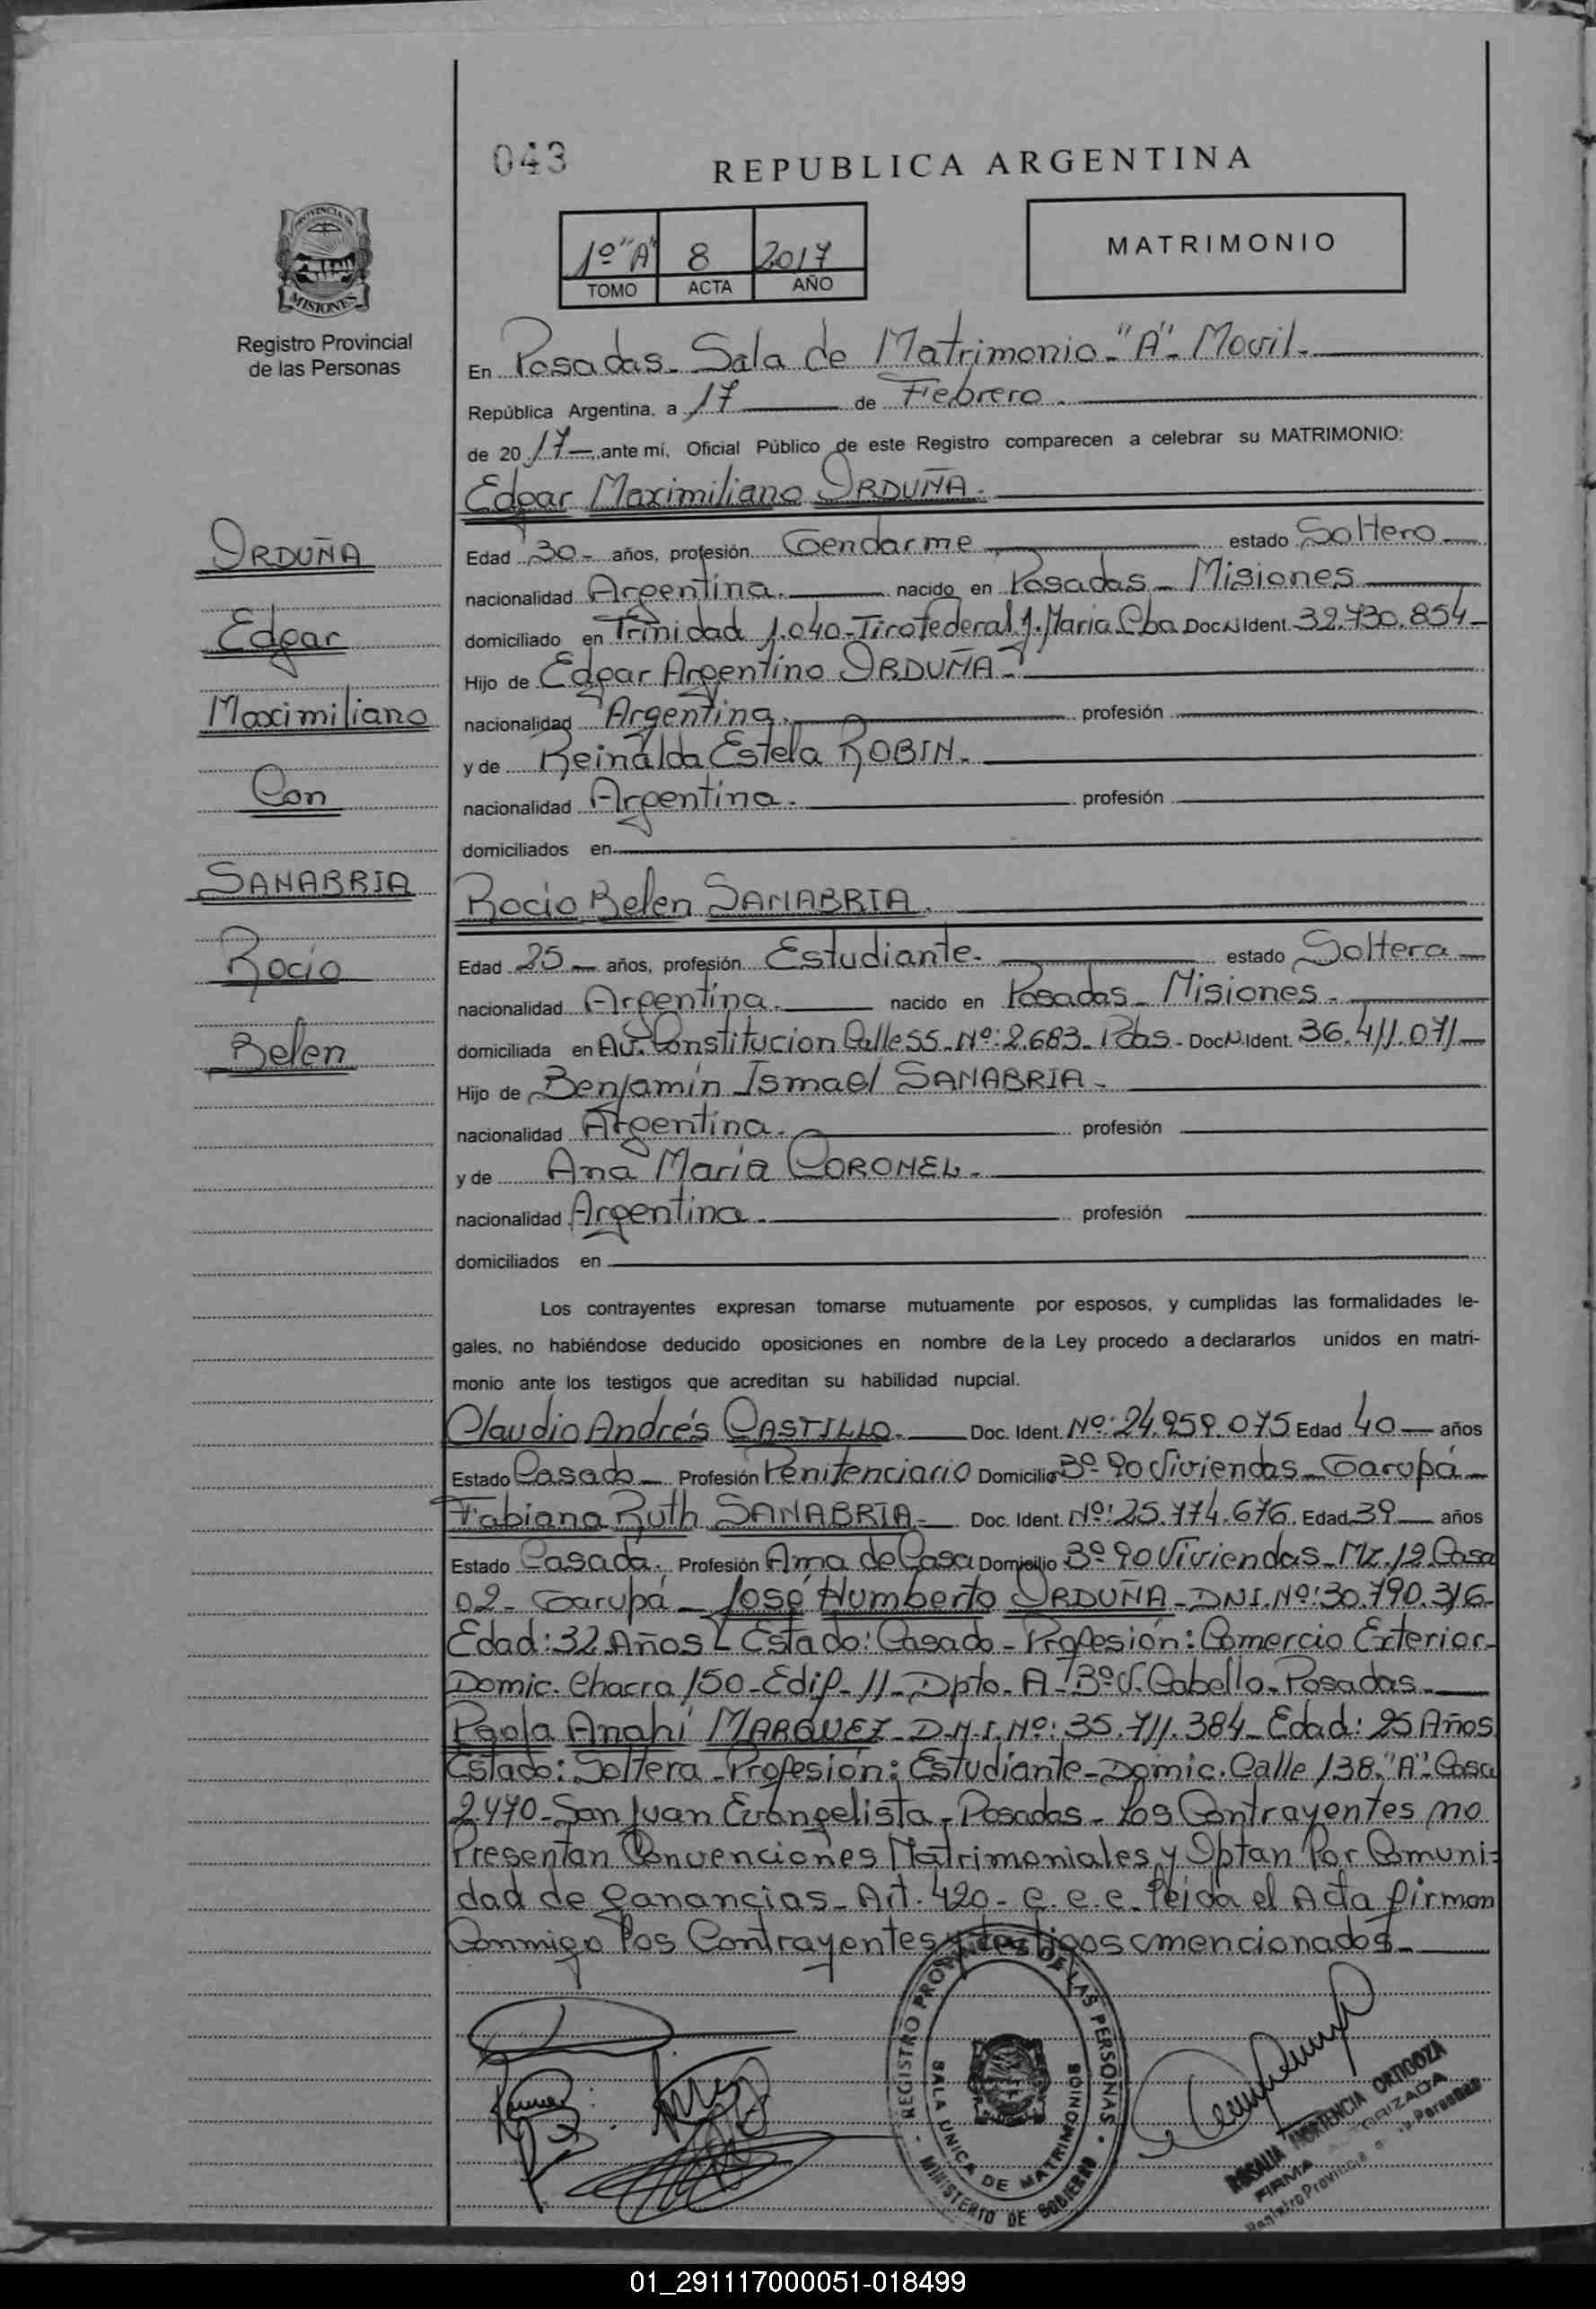 043
REPUBLICA ARGENTINA
1º "A" 8 2017
TOMO ACTA AÑO
MATRIMONIO
PROVINCIA DE
MISIONES
Registro Provincial
de las Personas
En Posadas - Sala de Matrimonio - "A" - Movil -
República Argentina, a 17 de Febrero -
de 2017 -, ante mí, Oficial Público de este Registro comparecen a celebrar su MATRIMONIO:
Edgar Maximiliano ORDUÑA -
Edad 30 - años, profesión Gendarme estado Soltero -
nacionalidad Argentina. nacido en Posadas - Misiones
domiciliado en Trinidad 1.040 - Tiro Federal J. Maria Cba Doc. N Ident. 32.730.854 -
Hijo de Edgar Argentino ORDUÑA -
nacionalidad Argentina. profesión
y de Reinalda Estela ROBIN.
nacionalidad Argentina. profesión
domiciliados en
Rocio Belen SANABRIA.
Edad 25 - años, profesión Estudiante - estado Soltera -
nacionalidad Argentina. nacido en Posadas - Misiones -
domiciliada en Av. Constitucion Calle 55 - Nº: 2.683 - Pdas - Doc. N Ident. 36.411.071 -
Hijo de Benjamin Ismael SANABRIA -
nacionalidad Argentina. profesión
y de Ana Maria CORONEL -
nacionalidad Argentina. profesión
domiciliados en
ORDUÑA
Edgar
Maximiliano
Con
SANABRIA
Rocio
Belen
Los contrayentes expresan tomarse mutuamente por esposos, y cumplidas las formalidades le-
gales, no habiéndose deducido oposiciones en nombre de la Ley procedo a declararlos unidos en matri-
monio ante los testigos que acreditan su habilidad nupcial.
Claudio Andrés CASTILLO - Doc. Ident. Nº: 24.959.075 Edad 40 - años
Estado Casado - Profesión Penitenciario Domicilio Bº 90 Viviendas - Garupá -
Fabiana Ruth SANABRIA - Doc. Ident. Nº: 25.774.676. Edad 39 - años
Estado Casada. Profesión Ama de Casa Domicilio Bº 90 Viviendas - Mz. 12. Casa
02 - Garupá - José Humberto ORDUÑA - DNI. Nº: 30.790.316 -
Edad: 32 Años - Estado: Casado - Profesión: Comercio Exterior -
Domic. Chacra 150 - Edif - 11 - Dpto - A - Bº J. Cabello - Posadas -
Paola Anahí MARQUEZ - D.N.I. Nº: 35.711.384 - Edad: 25 Años
Estado: Soltera - Profesión: Estudiante - Domic. Calle 138. "A" - Casa
2.470 - San Juan Evangelista - Posadas - Los Contrayentes no
Presentan Convenciones Matrimoniales y Optan Por Comuni-
dad de ganancias - Art. 420 - C.C.C. Leida el Acta firman
Conmigo Los Contrayentes y testigos mencionados -
REGISTRO PROVINCIAL DE LAS PERSONAS
SALA UNICA DE MATRIMONIOS
MINISTERIO DE GOBIERNO
ROSALIA HORTENCIA ORTIGOZA
FIRMA AUTORIZADA
01_291117000051-018499